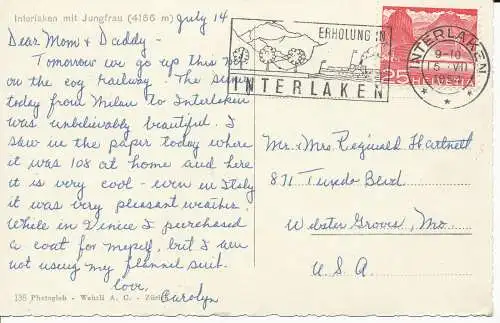 Interlaken mit Jungfrau (4166 m)
July 14
Dear Mom & Daddy -
Tomorrow we go up this
on the cog railway. The
today from Milan to Interlaken
was unbelievably beautiful. I
saw in the paper today where
it was 108 at home and here
it is very cool - even in Italy
it was very pleasant weather.
While in Venice I purchased
a coat for myself, but I am
not using my flannel suit.
Love,
Carolyn
136 Photoglob - Wehrli A. G. - Zürich
ERHOLUNG IN
INTERLAKEN
25 HELVETIA
INTERLAKEN
9-10
15. VII
Mr. & Mrs. Reginald Hartnett
871 Tuxedo Blvd
Webster Groves, Mo.
U.S.A.